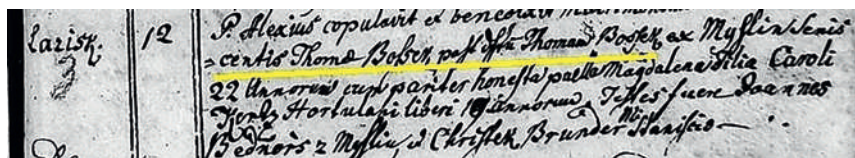 Larisk. 12 P. Alexius copulavit et benedixit Matrimonium
centis Thomæ Bossek post dfctu Thomam Bossek ex Myslin Senis
22 Annorum cum pariter honesta puella Magdalena filia Caroli
Hortulani liberi 19 annorum. Testes fuere Joannes
Bednors z Myslin et Christek Brunder